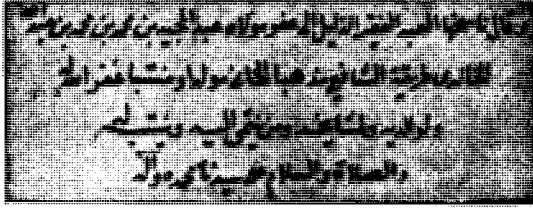 وكان ناسخها العبد الفقير الذليل الى عفو مولاه عبد المجيد بن محمد بن محمد بن عبد
الخالدى طريقة الشافعى مذهبا الخانى مولدا ومنتسبا غفر الله له
ولوالديه ولمشايخه ومن ينتمى اليه وينتسب اليه
والصلاة والسلام على سيدنا محمد وآله